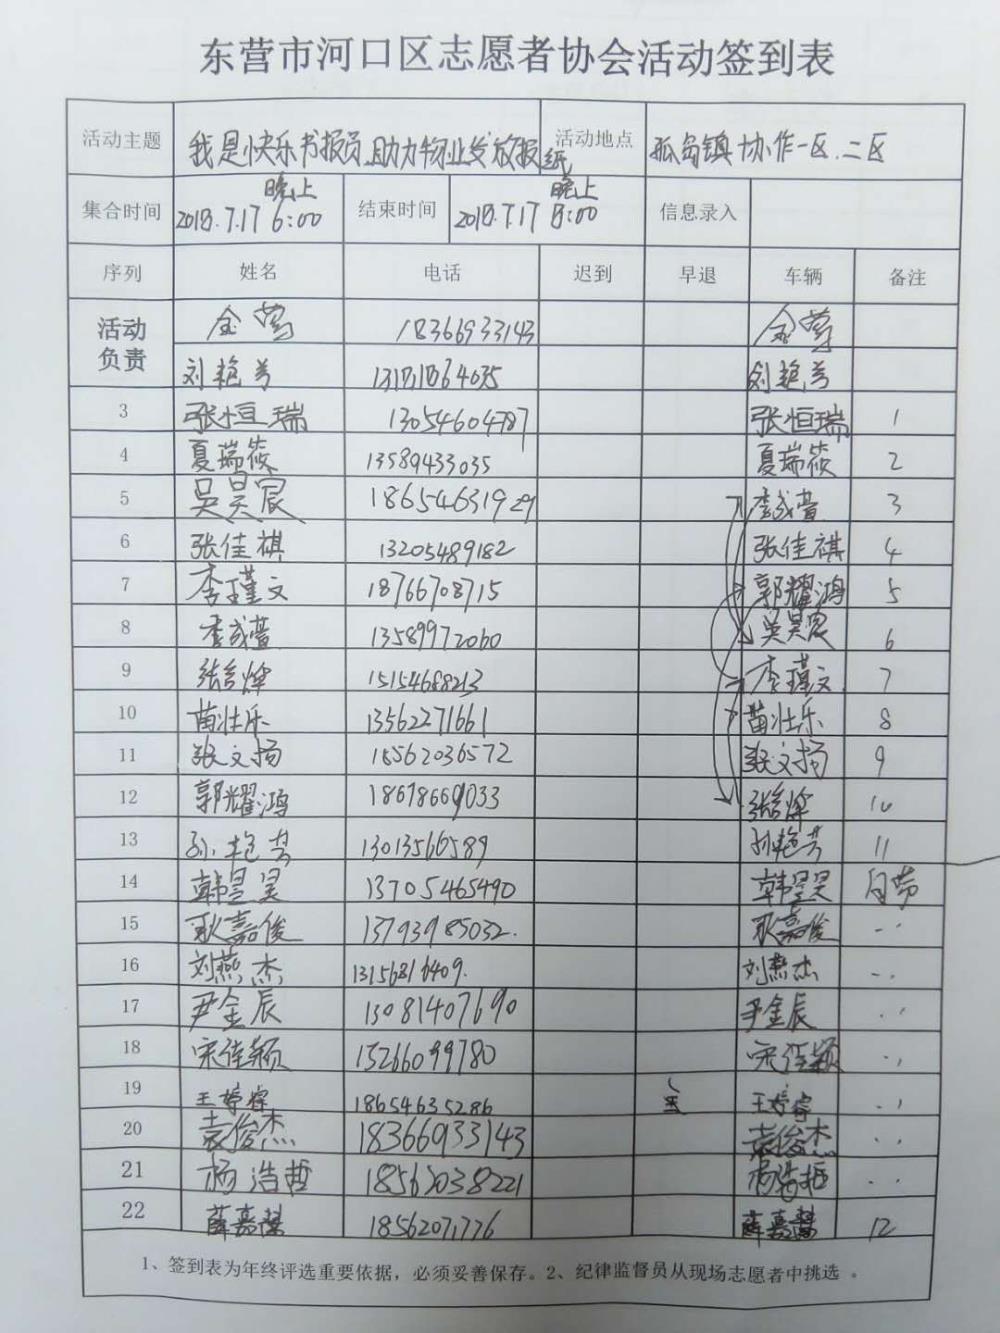 东营市河口区志愿者协会活动签到表
活动主题 我是快乐书报员.助力物业发放报纸 活动地点 孤岛镇协作一区.二区
集合时间 2018.7.17 晚上 6:00 结束时间 2018.7.17 晚上 8:00 信息录入
序列 姓名 电话 迟到 早退 车辆 备注
活动负责 金莺 18366933143 金莺
刘艳芳 刘艳芳
3 张恒瑞 13054604787 张恒瑞 1
4 夏瑞筱 13589433035 夏瑞筱 2
5 吴昊宸 18654631929 李成萱 3
6 张佳祺 13205489182 张佳祺 4
7 李瑾文 18766708715 郭耀鸿 5
8 李成萱 13589972060 吴昊宸 6
9 15154688213 李瑾文 7
10 苗壮乐 13562271661 苗壮乐 8
11 张文扬 18562036572 张文扬 9
12 郭耀鸿 18678669033 10
13 孙艳芳 13013566589 孙艳芳 11
14 韩昱昊 13705465490 韩昱昊 自带
15 耿嘉俊 13793985032. 耿嘉俊 ..
16 刘燕杰 刘燕杰 ..
17 尹金辰 13081407690 尹金辰 ..
18 宋佳颖 15266099780 宋佳颖 ..
19 王婷睿 18654635286 王婷睿 ..
20 袁俊杰 18366933143 袁俊杰 ..
21 杨浩哲 18562038221 杨浩哲 ..
22 薛嘉馨 18562071776 薛嘉馨 12
1、签到表为年终评选重要依据，必须妥善保存。2、纪律监督员从现场志愿者中挑选。